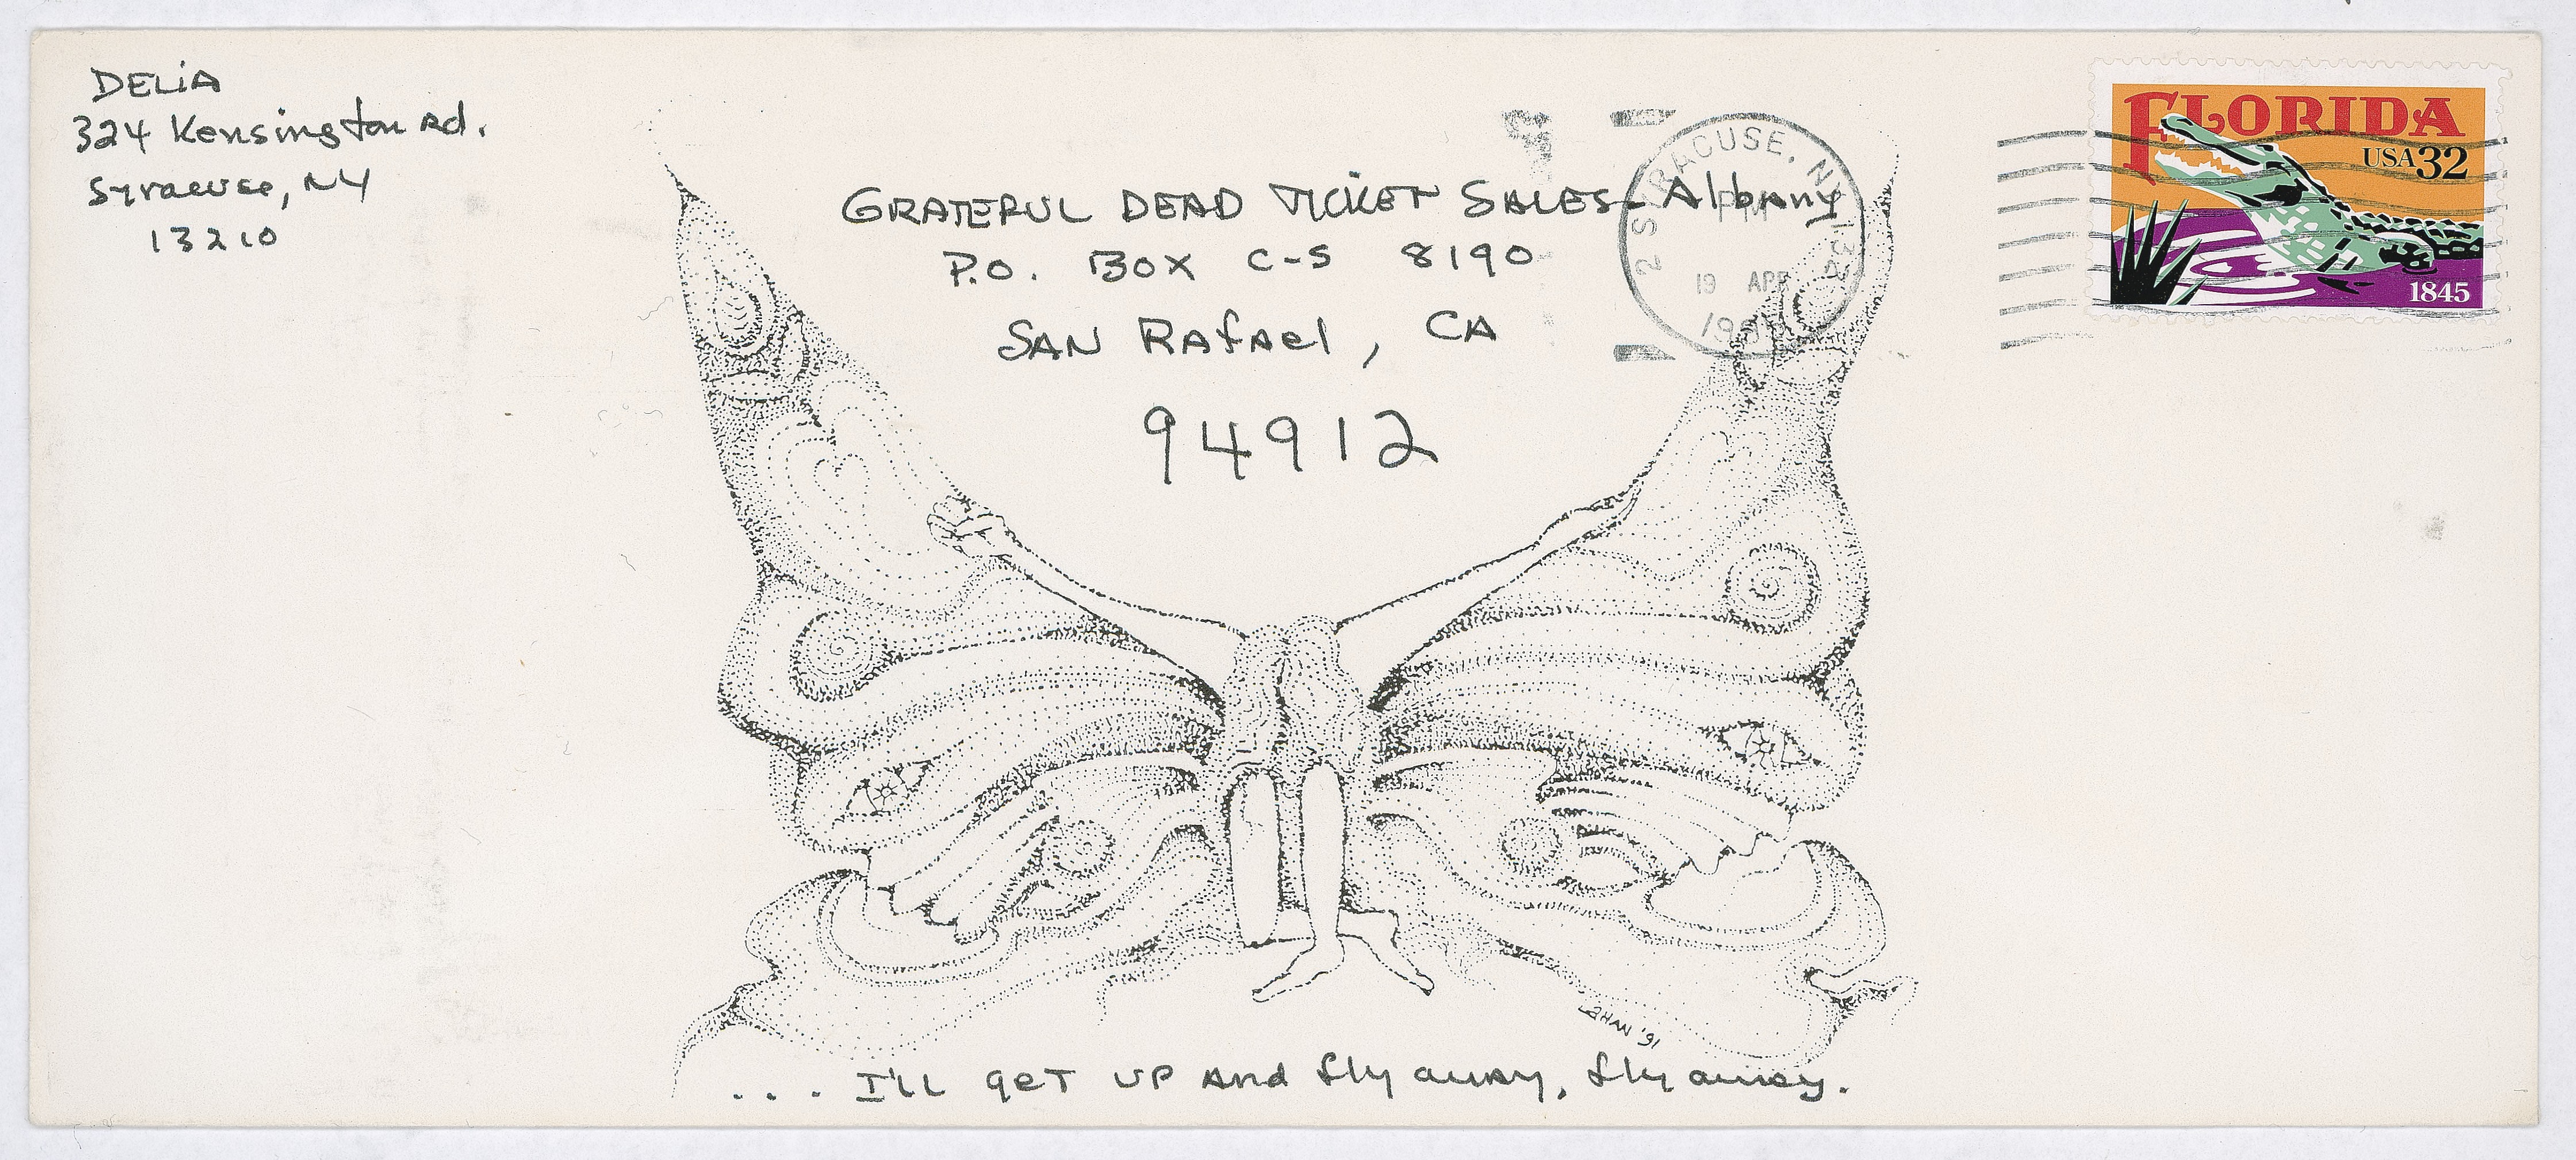 DELIA
324 Kensington Rd.
Syracuse, NY
13210
GRATEFUL DEAD TICKET SALES- Albany
P.O. BOX C-S 8190
SAN RAfael, CA
94912
SYRACUSE, NY 132
PM
19 APR
FLORIDA
USA 32
1845
'91
... I'll get up and fly away, fly away.